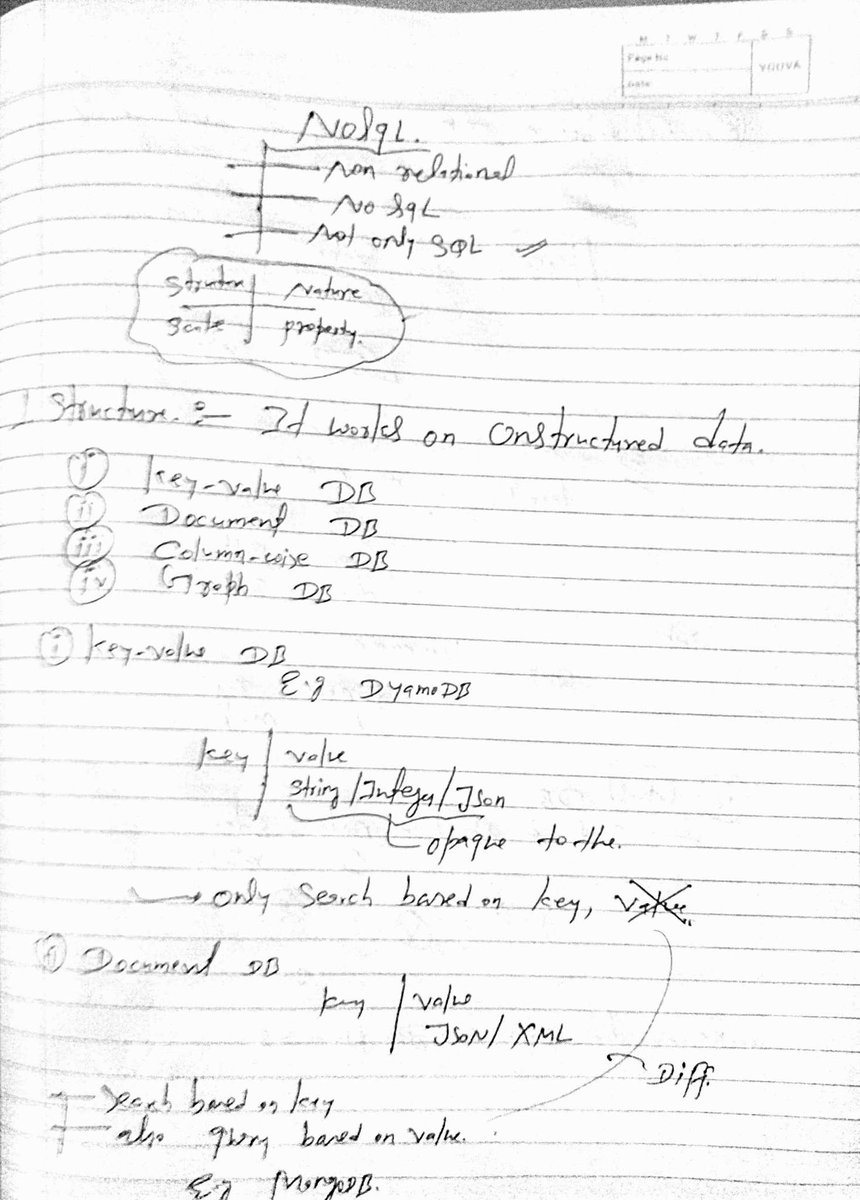 M T W T F S S
Page No
YOUVA
Date
NoSqL.
Non relational
No SqL
Not only SQL
Nature
Scale property.
1 Structure :- It works on Unstructured data.
i Key-value DB
ii Document DB
iii Column-wise DB
iv Graph DB
i Key-value DB
E.g DyamoDB
Key value
String/Integer/Json
opaque to the.
→ only Search based on key, value
ii Document DB
Key value
JSON/ XML
Diff.
Search based on key
also query based on value.
E.g MongoDB.